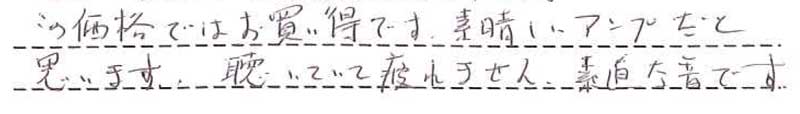 この価格ではお買い得です.素晴しいアンプだと
思います. 聴いていて疲れません.素直な音です